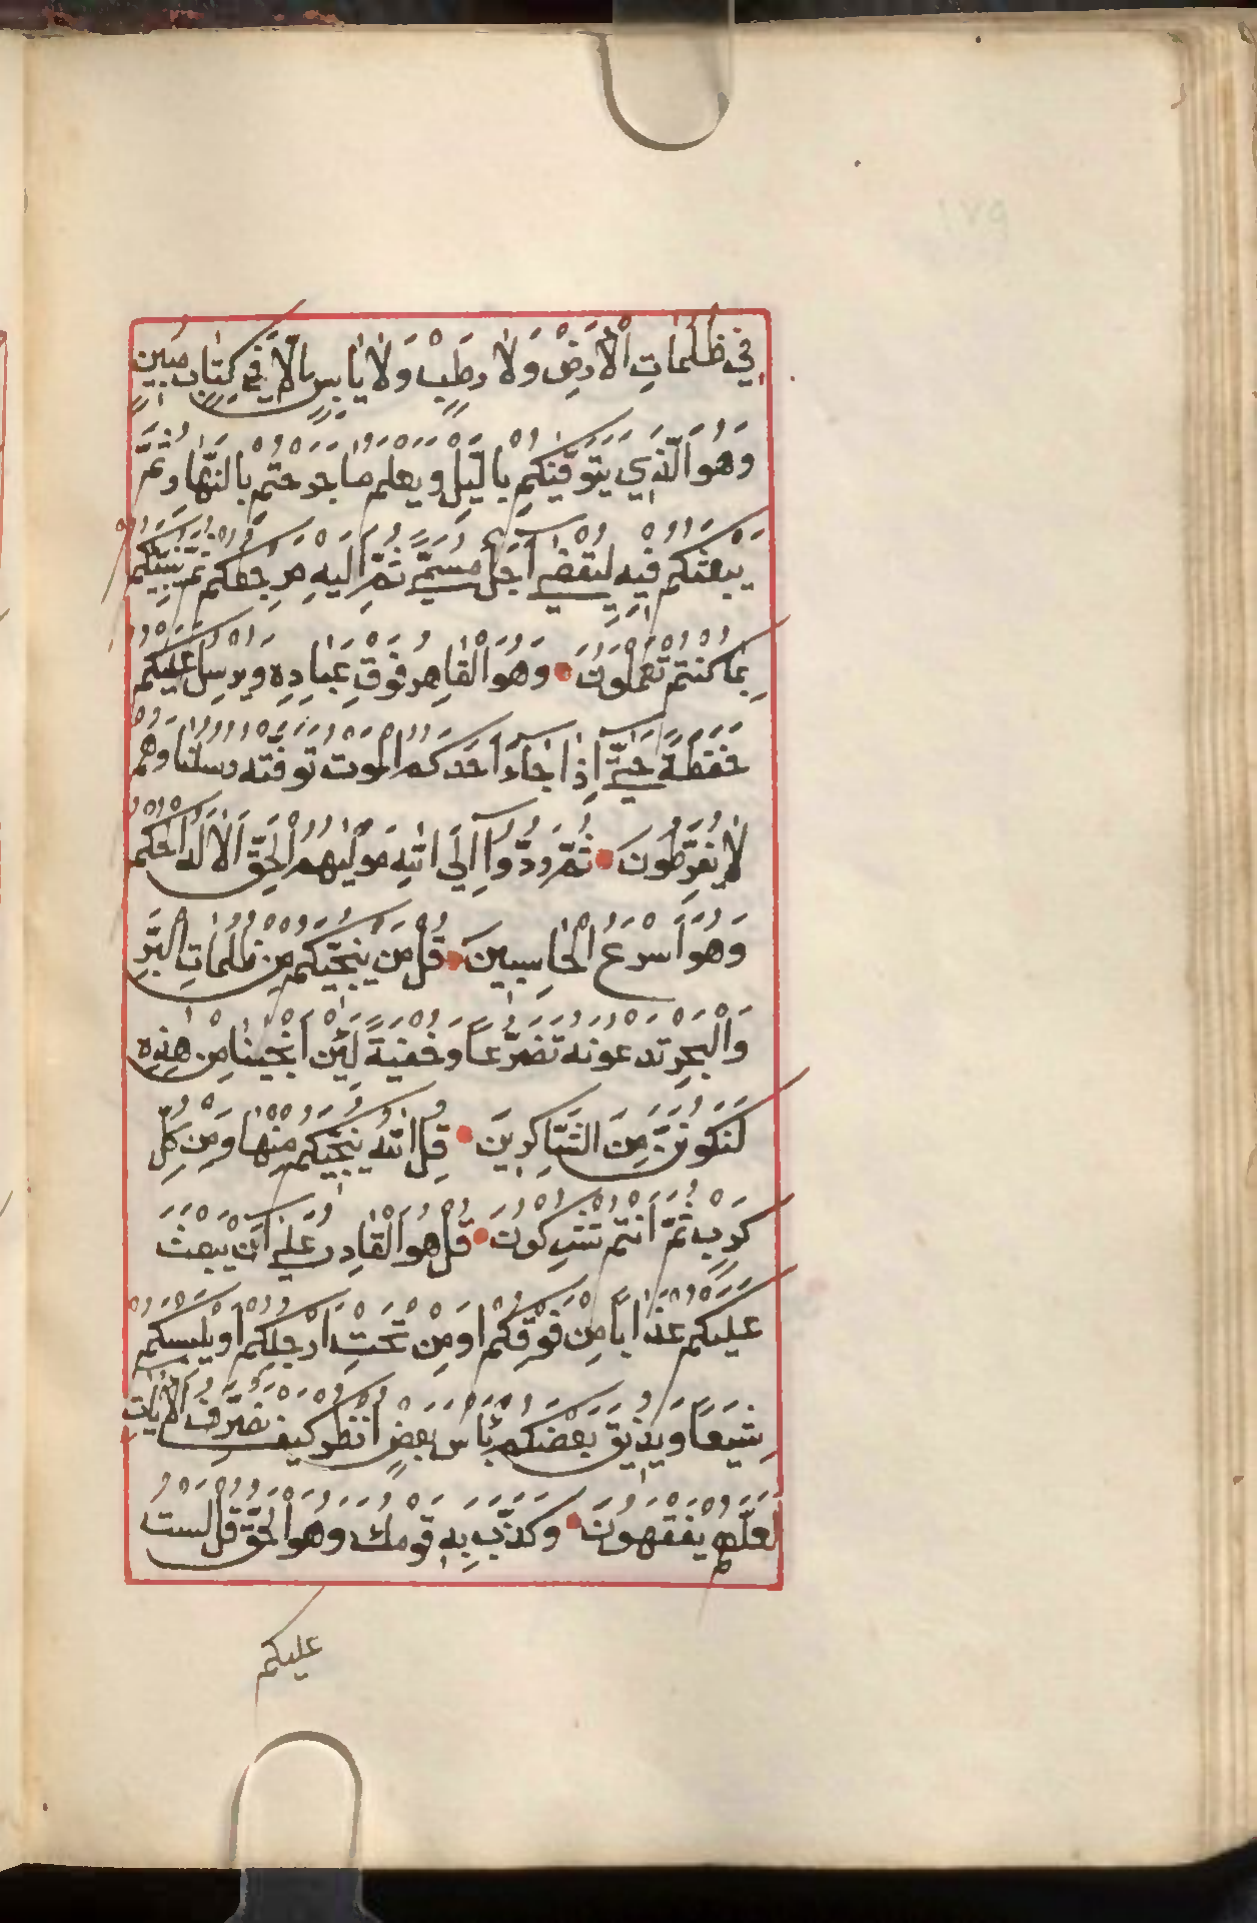 فِي ظُلُمَاتِ الْأَرْضِ وَلَا رَطْبٍ وَلَا يَابِسٍ اِلَّا فِي كِتَابٍ مُبِينٍ
وَهُوَ الَّذِي يَتَوَفّٰيكُمْ بِاللَّيْلِ وَيَعْلَمُ مَا جَرَحْتُمْ بِالنَّهَارِ ثُمَّ
يَبْعَثُكُمْ فِيهِ لِيُقْضٰى اَجَلٌ مُسَمًّى ثُمَّ اِلَيْهِ مَرْجِعُكُمْ ثُمَّ يُنَبِّئُكُمْ
بِمَا كُنْتُمْ تَعْمَلُونَ وَهُوَ الْقَاهِرُ فَوْقَ عِبَادِهِ وَيُرْسِلُ عَلَيْكُمْ
حَفَظَةً حَتّٰى اِذَا جَاءَ اَحَدَكُمُ الْمَوْتُ تَوَفَّتْهُ رُسُلُنَا وَهُمْ
لَا يُفَرِّطُونَ ثُمَّ رُدُّوا اِلَى اللّٰهِ مَوْلٰيهُمُ الْحَقِّ اَلَا لَهُ الْحُكْمُ
وَهُوَ اَسْرَعُ الْحَاسِبِينَ قُلْ مَنْ يُنَجِّيكُمْ مِنْ ظُلُمَاتِ الْبَرِّ
وَالْبَحْرِ تَدْعُونَهُ تَضَرُّعًا وَخُفْيَةً لَئِنْ اَنْجَيْتَنَا مِنْ هٰذِهِ
لَنَكُونَنَّ مِنَ الشَّاكِرِينَ قُلِ اللّٰهُ يُنَجِّيكُمْ مِنْهَا وَمِنْ كُلِّ
كَرْبٍ ثُمَّ اَنْتُمْ تُشْرِكُونَ قُلْ هُوَ الْقَادِرُ عَلٰى اَنْ يَبْعَثَ
عَلَيْكُمْ عَذَابًا مِنْ فَوْقِكُمْ اَوْ مِنْ تَحْتِ اَرْجُلِكُمْ اَوْ يَلْبِسَكُمْ
شِيَعًا وَيُذِيقَ بَعْضَكُمْ بَأْسَ بَعْضٍ اُنْظُرْ كَيْفَ نُصَرِّفُ الْاٰيَاتِ
لَعَلَّهُمْ يَفْقَهُونَ وَكَذَّبَ بِهِ قَوْمُكَ وَهُوَ الْحَقُّ قُلْ لَسْتُ
عليكم